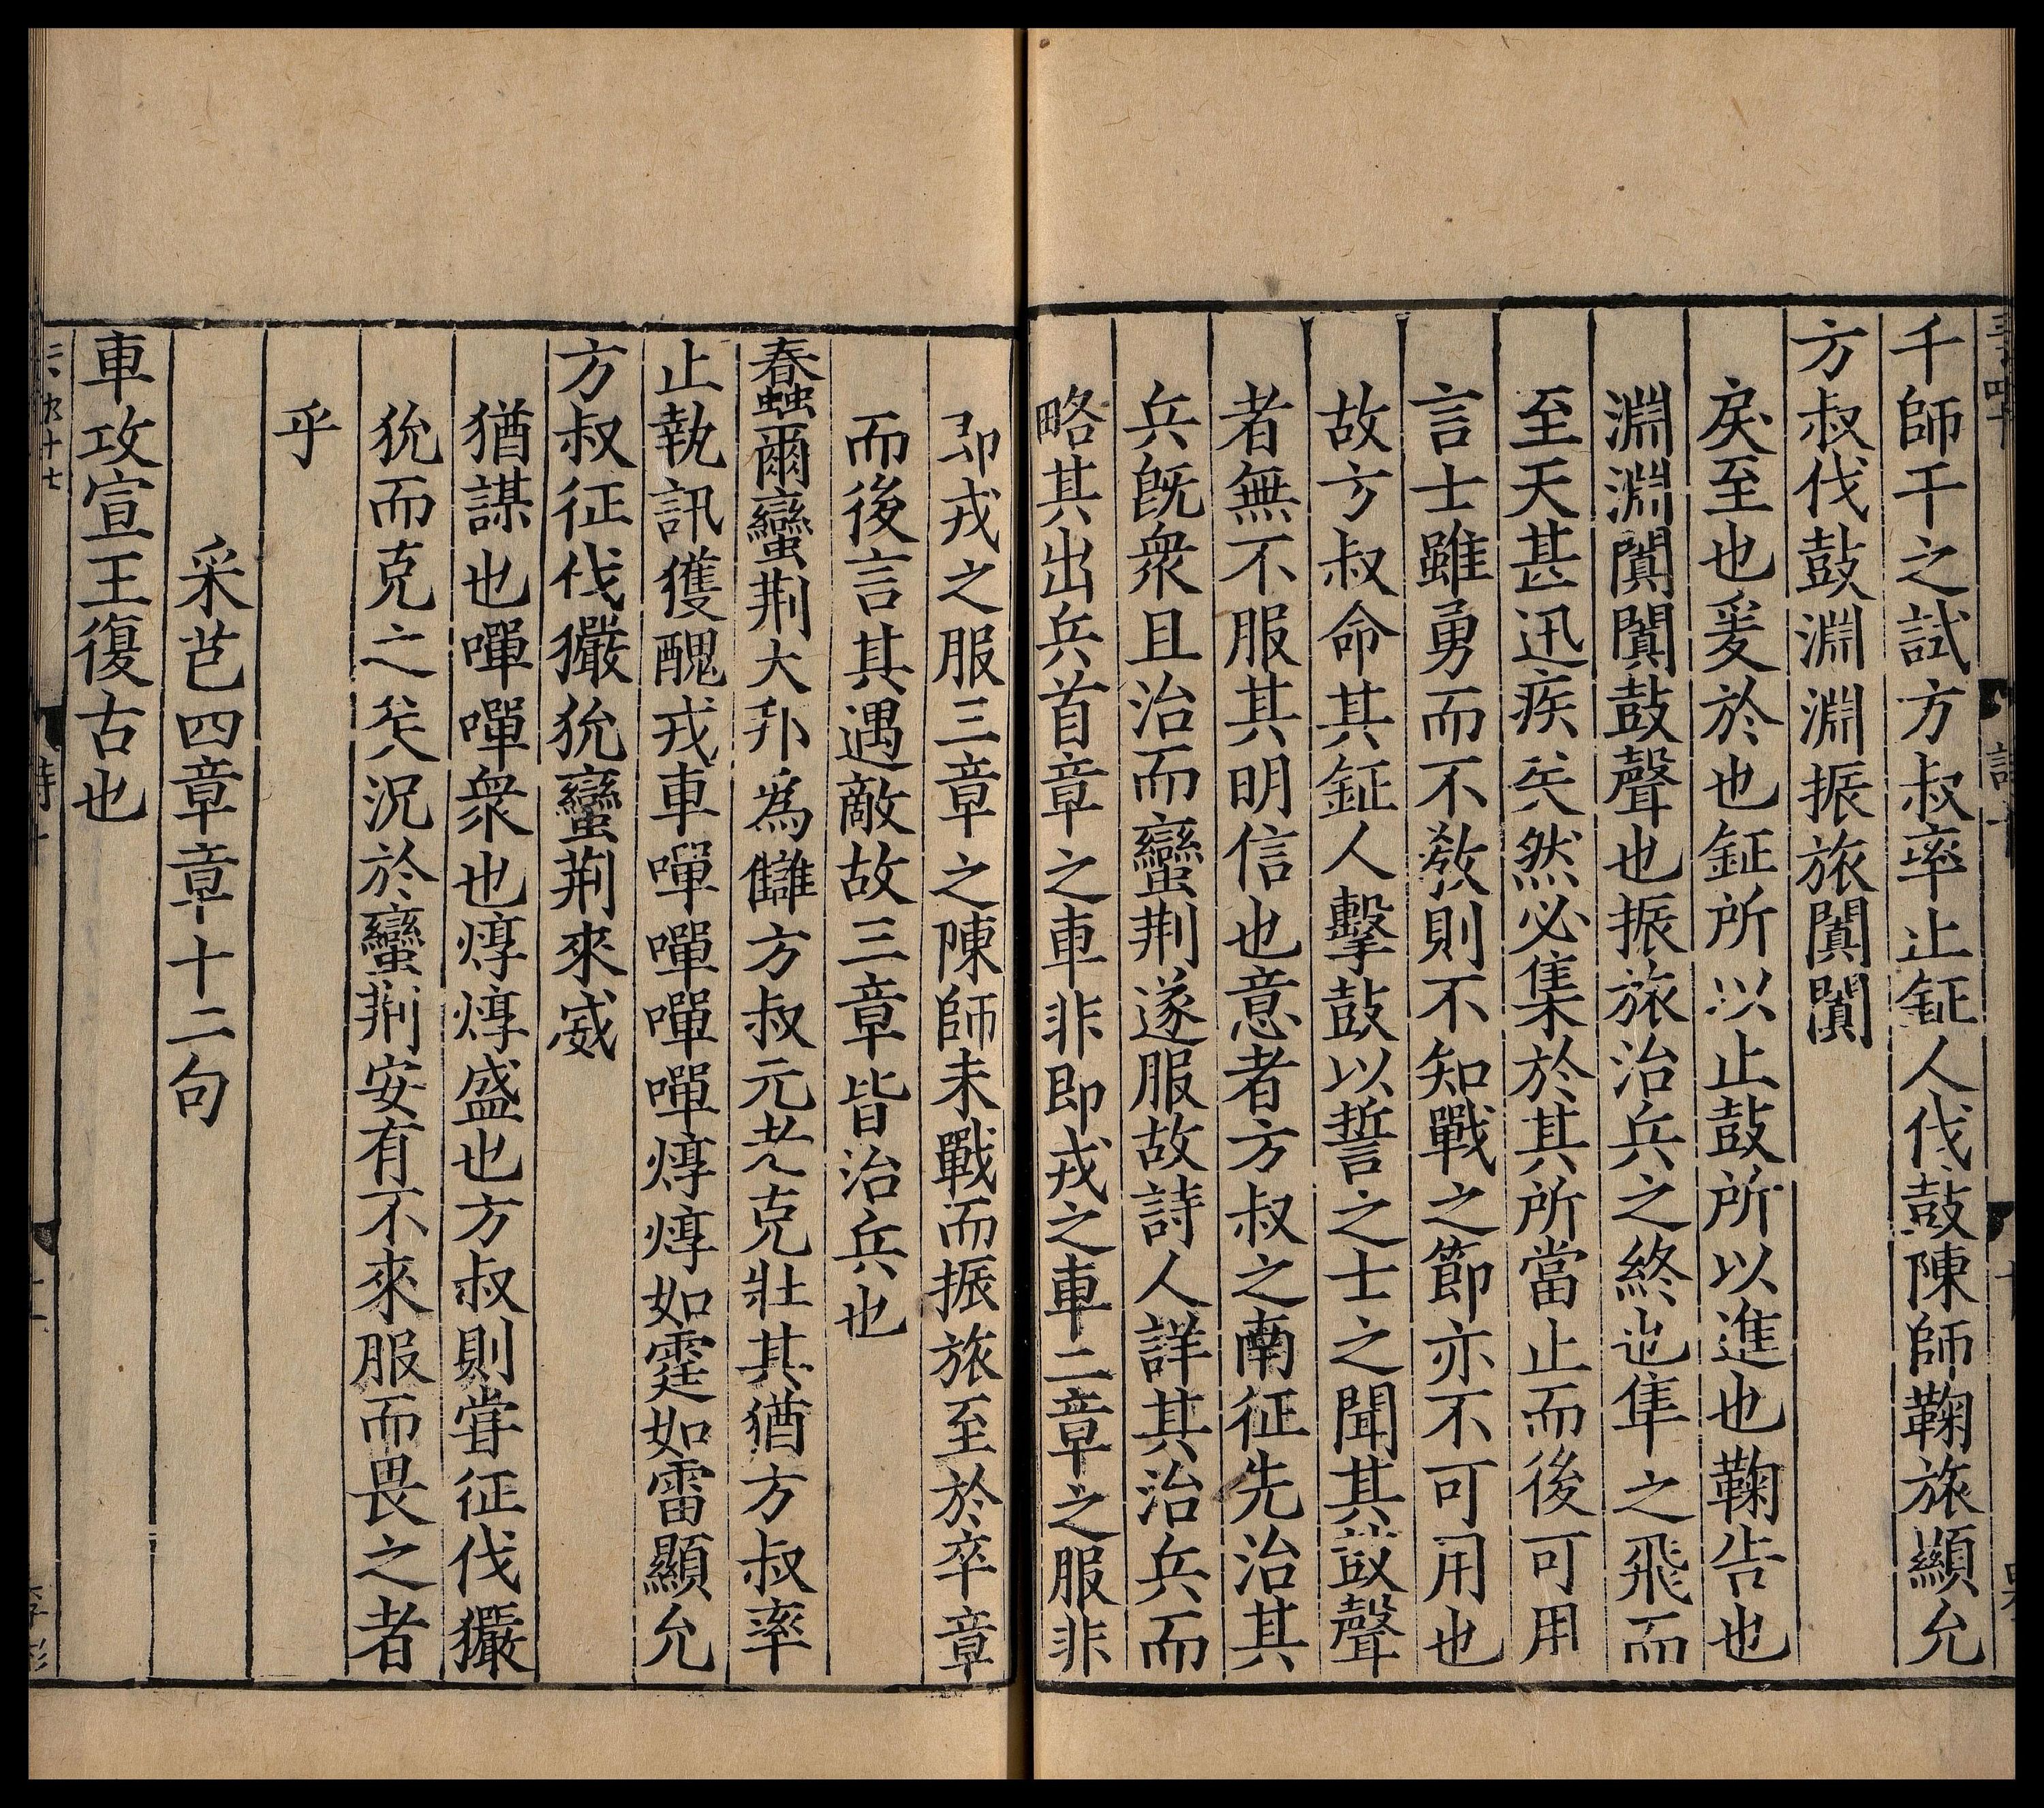 千師干之試方叔率止鉦人伐鼓陳師鞠旅顯允
方叔伐鼓淵淵振旅闐闐
戾至也爰於也鉦所以止鼓所以進也鞠告也
淵淵闐闐鼓聲也振旅治兵之終也隼之飛而
至天甚迅疾矣然必集於其所當止而後可用
言士雖勇而不敎則不知戰之節亦不可用也
故方叔命其鉦人擊鼓以誓之士之聞其鼓聲
者無不服其明信也意者方叔之南征先治其
兵旣衆且治而蠻荆遂服故詩人詳其治兵而
略其出兵首章之車非即戎之車二章之服非
即戎之服三章之陳師未戰而振旅至於卒章
而後言其遇敵故三章皆治兵也
蠢爾蠻荆大邦爲讎方叔元老克壯其猶方叔率
止執訊獲醜戎車嘽嘽嘽嘽焞焞如霆如雷顯允
方叔征伐玁狁蠻荆來威
猶謀也嘽嘽衆也焞焞盛也方叔則甞征伐玁
狁而克之矣况於蠻荆安有不來服而畏之者
乎
采芑四章章十二句
車攻宣王復古也